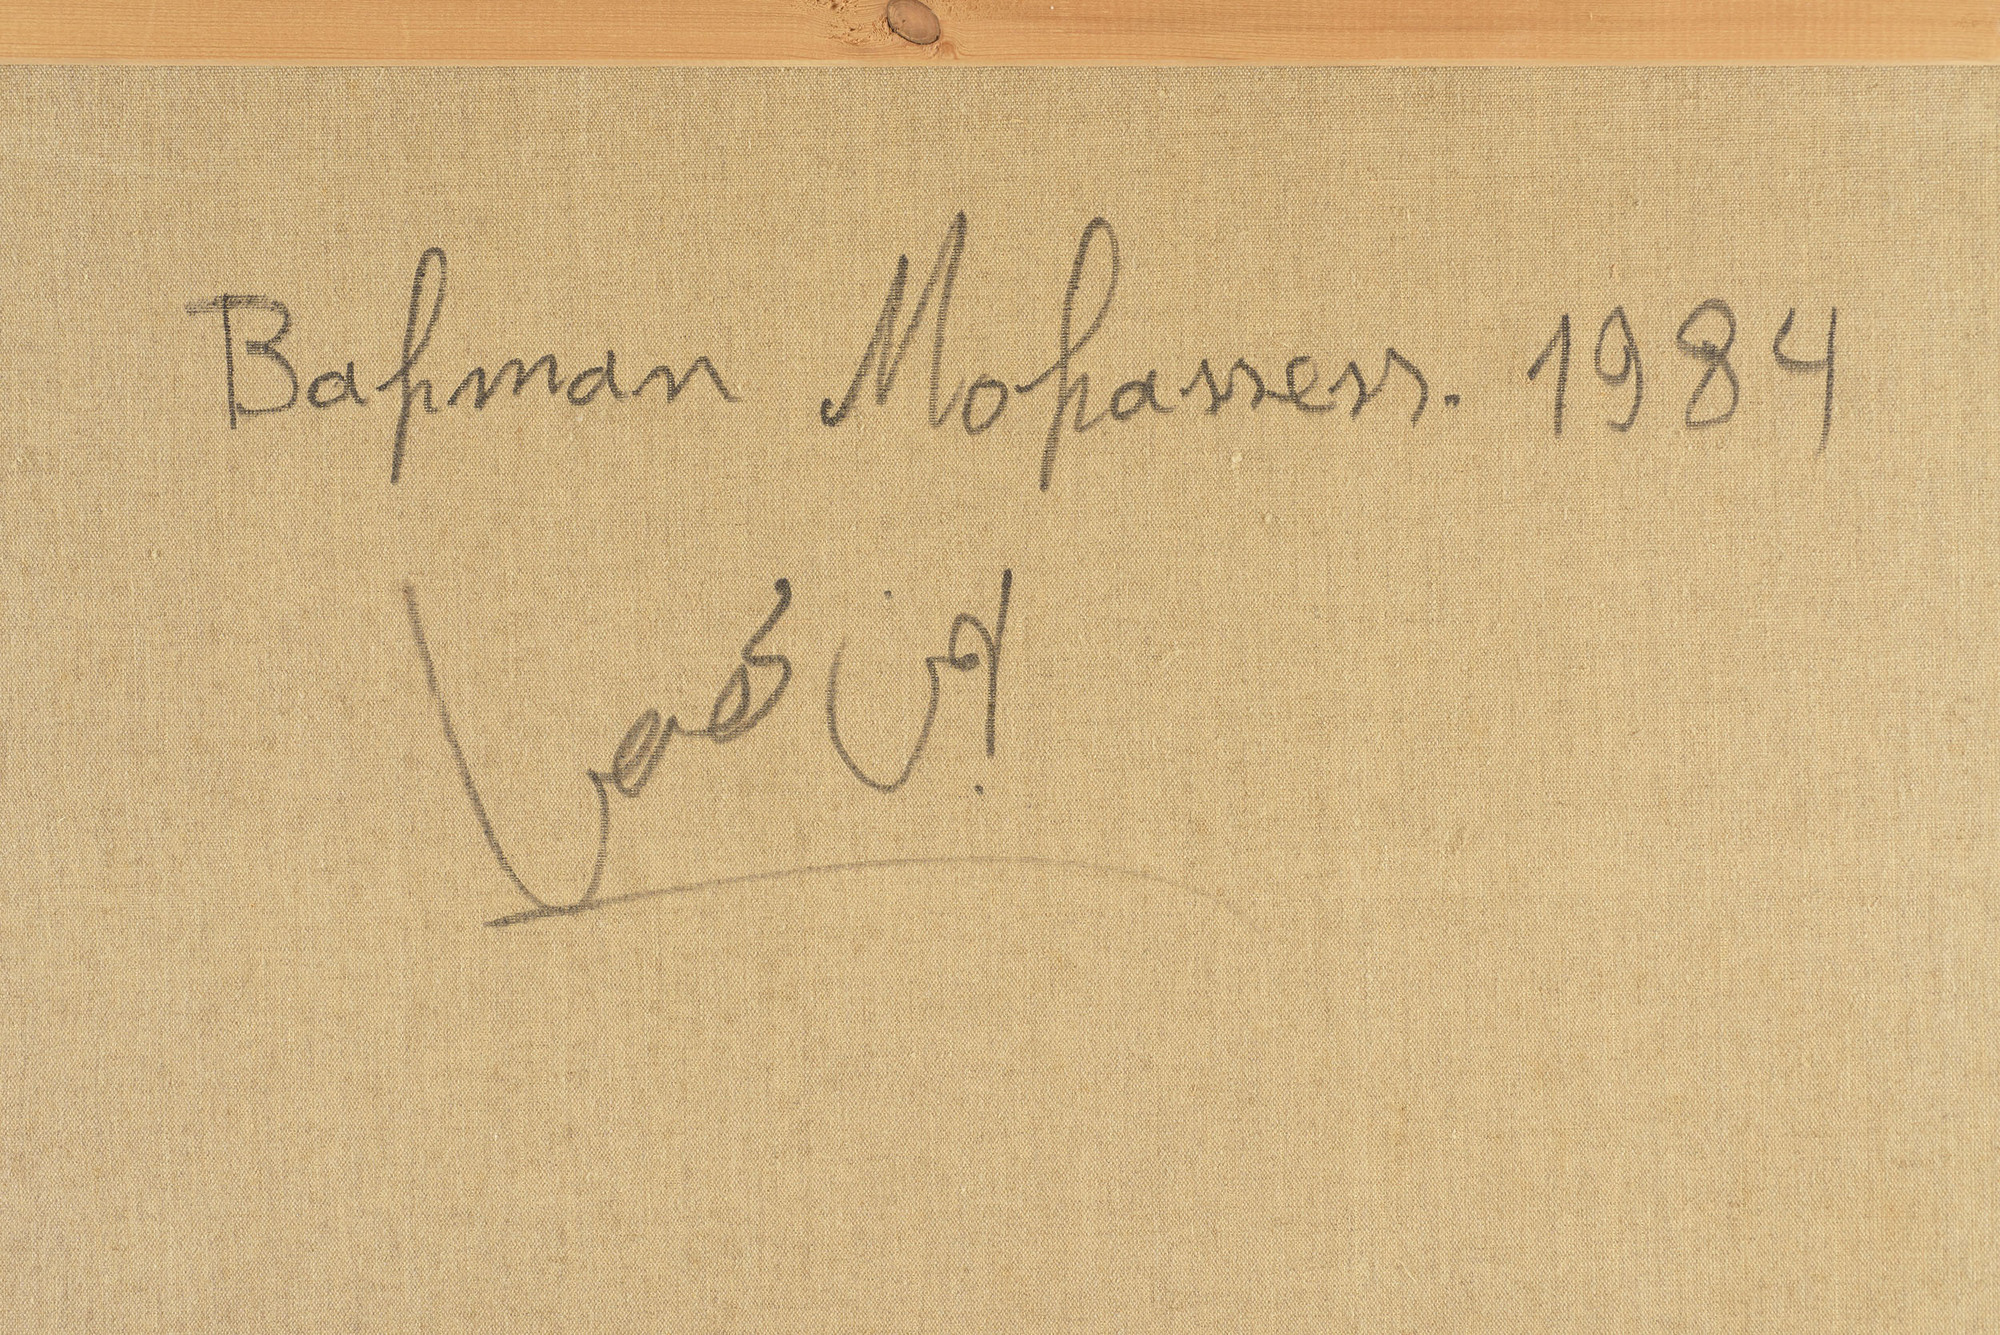 Bahman Mohassess. 1984
بهمن محصص